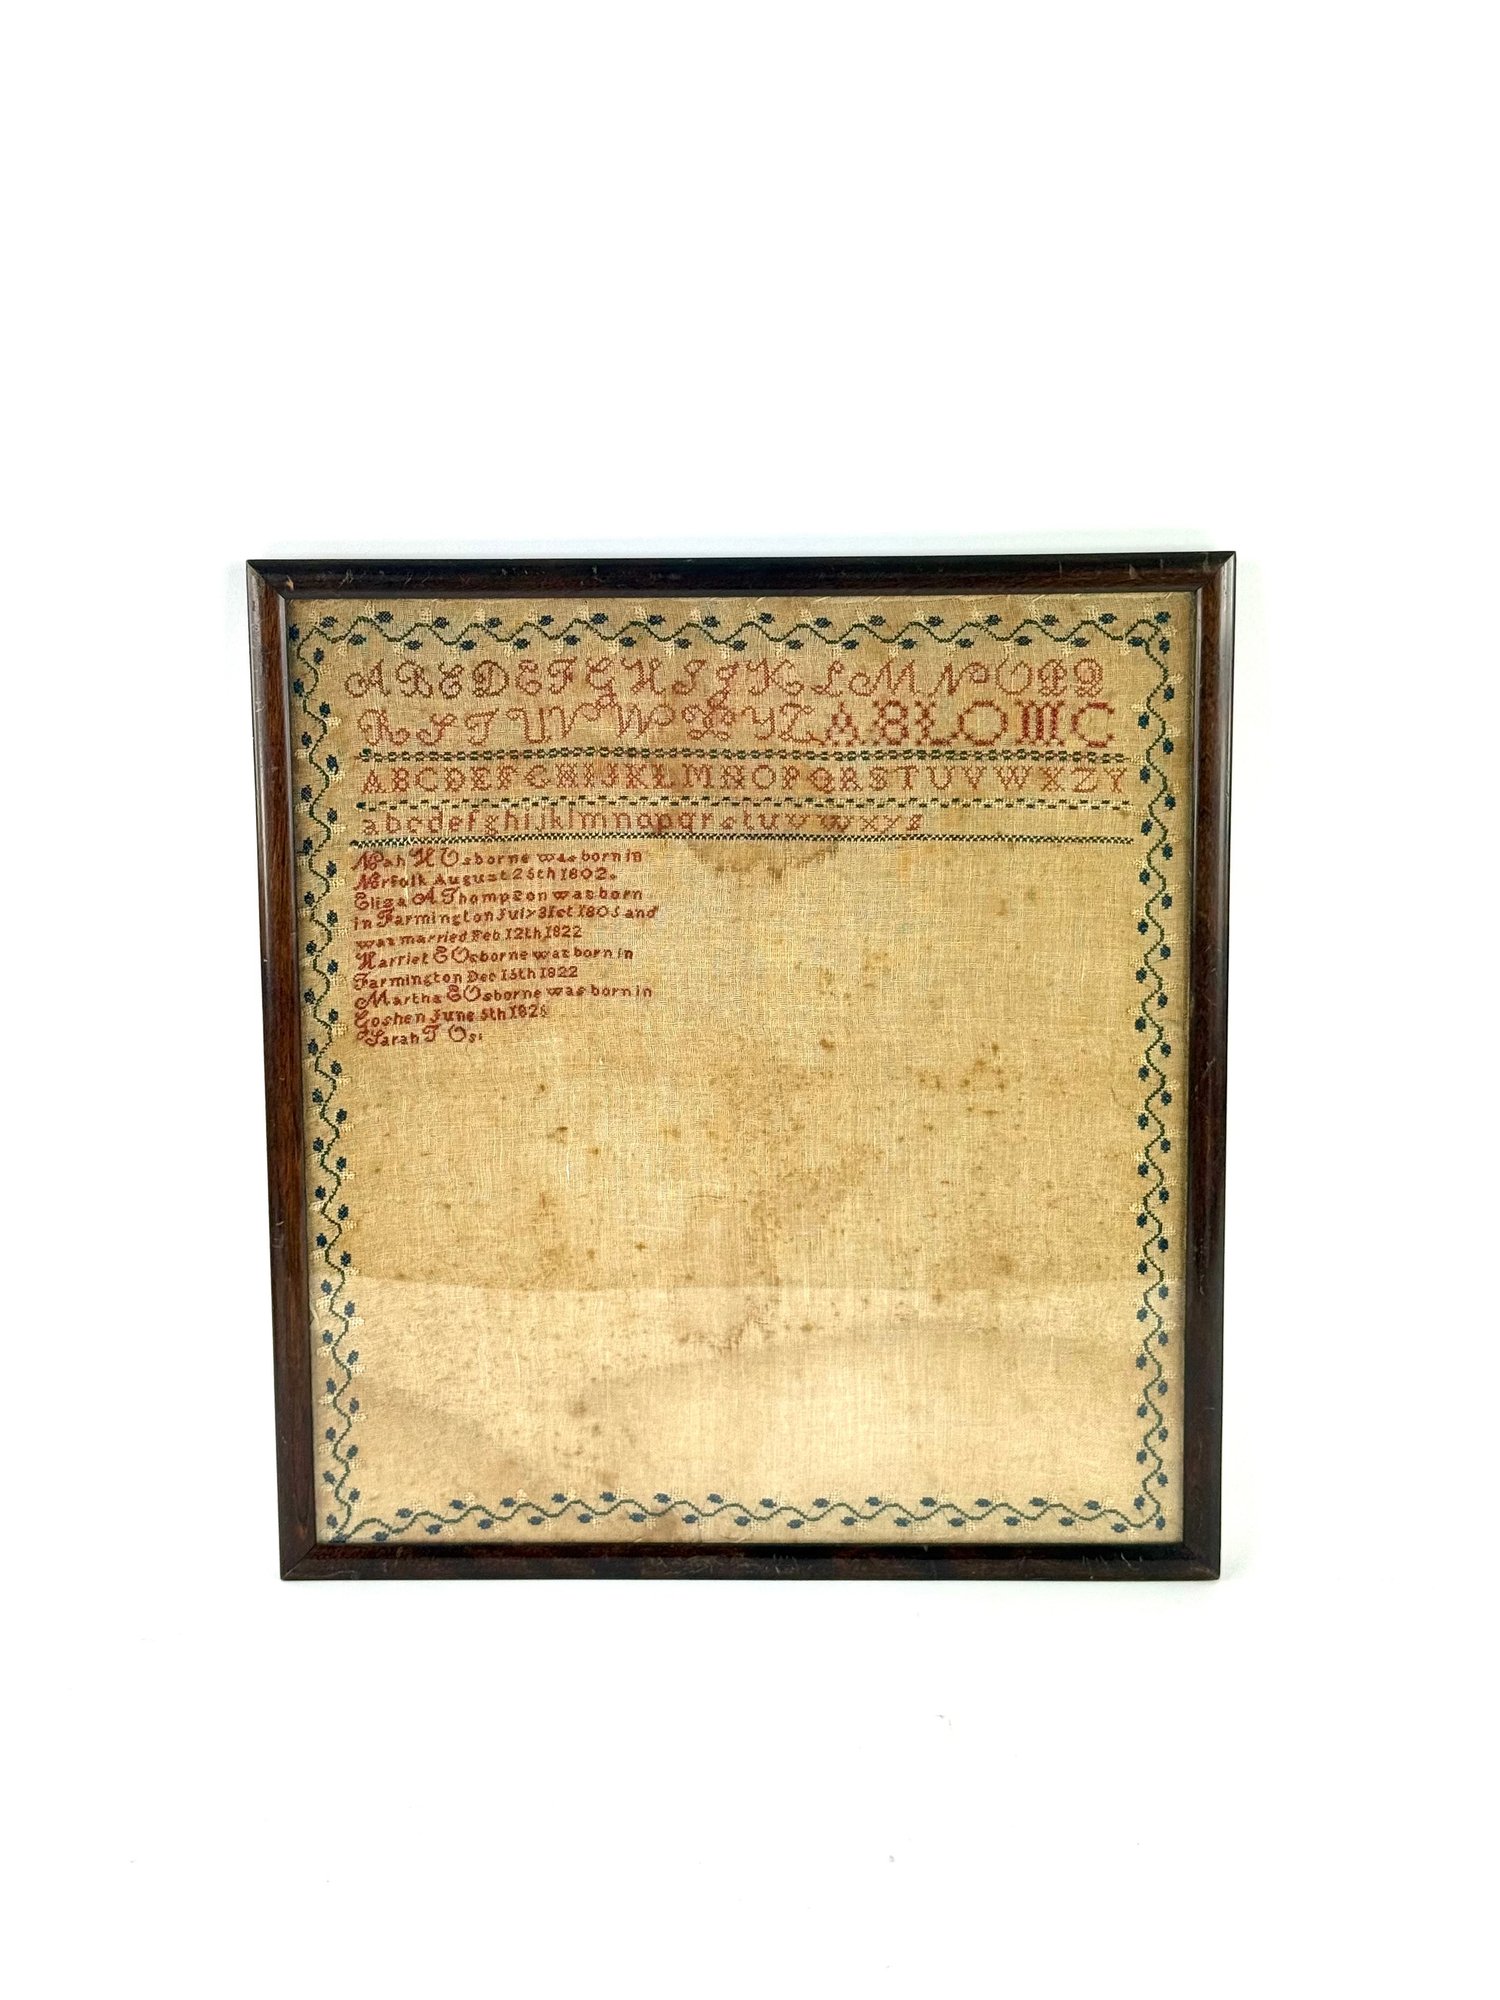 A B C D E F G H I J K L M N O P Q
R S T U V W X Y Z A B L O M C
A B C D E F G H I J K L M N O P Q R S T U V W X Z Y
a b c d e f g h i j k l m n o p q r s t u v w x y z
H Osborne was born in
Norfolk August 25th 1802.
Eliza A Thompson was born
in Farmington July 31st 1805 and
was married Feb 12th 1822
Harriet E Osborne was born in
Farmington Dec 15th 1822
Martha E Osborne was born in
Goshen June 5th
Sarah T Os